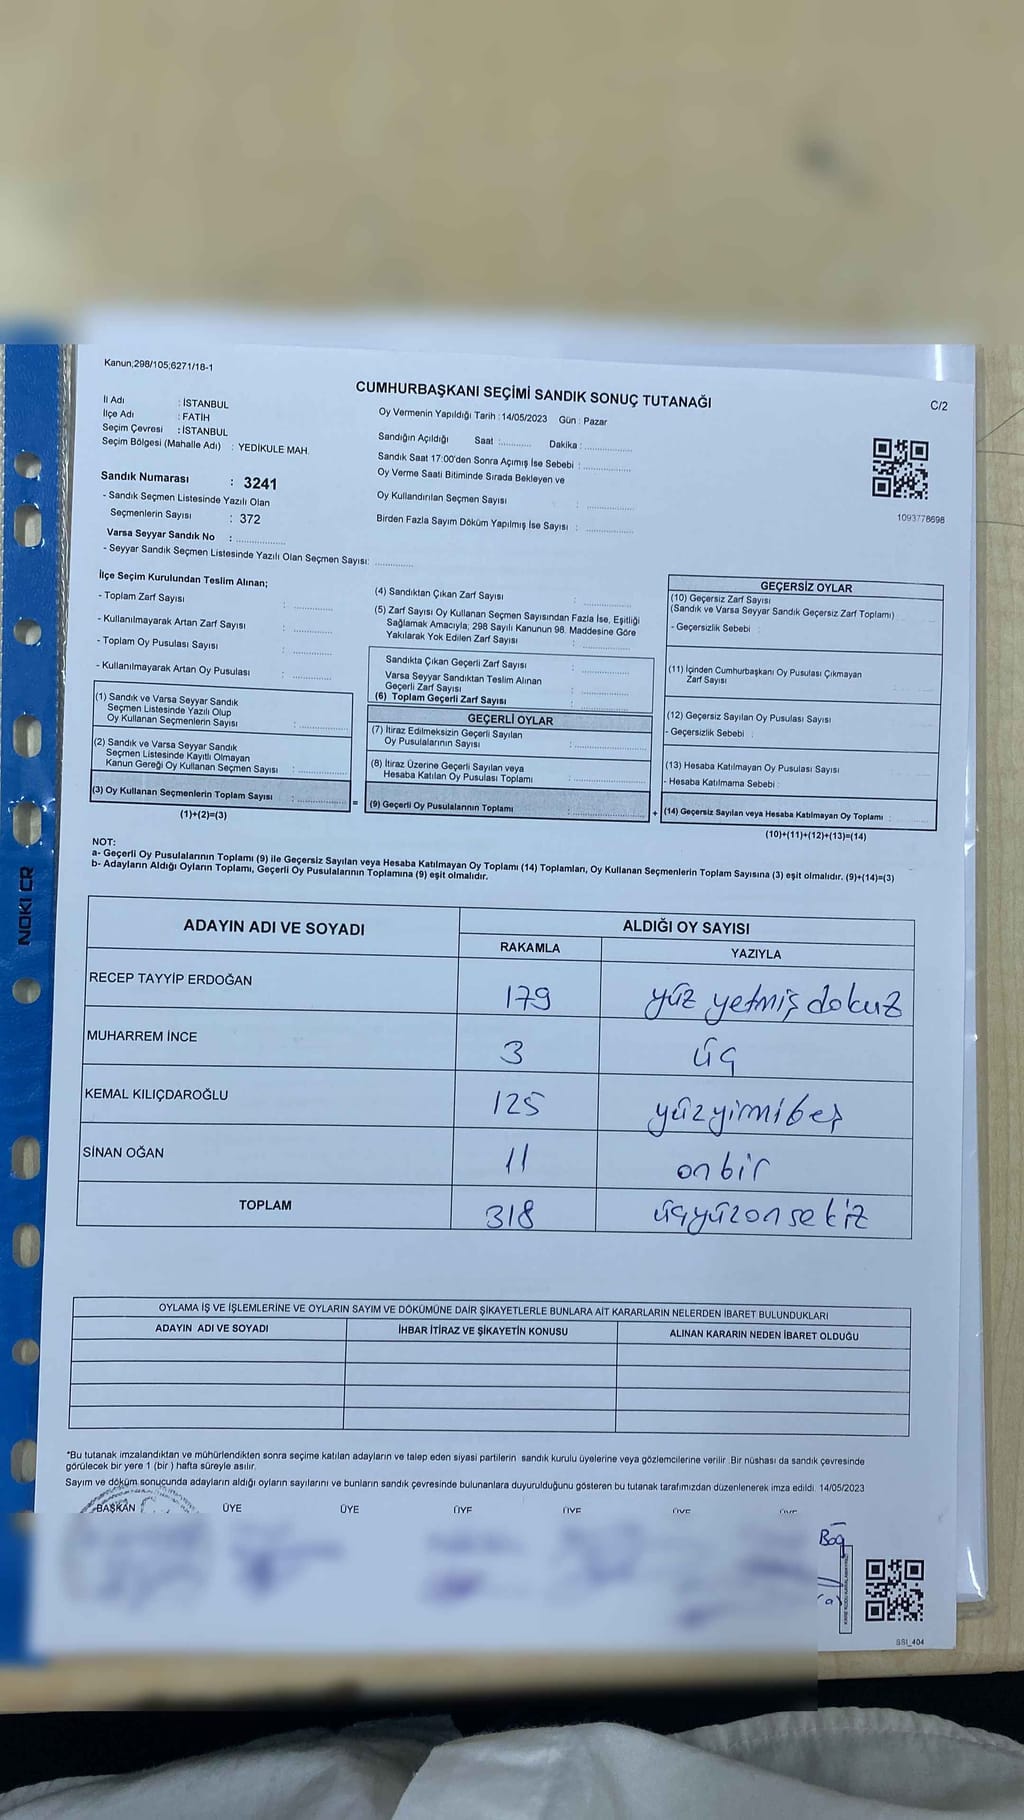 Kanun;298/105;6271/18-1
CUMHURBAŞKANI SEÇİMİ SANDIK SONUÇ TUTANAĞI
C/2
İl Adı : İSTANBUL
İlçe Adı : FATİH
Seçim Çevresi : İSTANBUL
Seçim Bölgesi (Mahalle Adı) : YEDİKULE MAH.
Oy Vermenin Yapıldığı Tarih : 14/05/2023 Gün : Pazar
Sandığın Açıldığı Saat :........... Dakika :................
Sandık Saat 17:00'den Sonra Açımış İse Sebebi :................
Oy Verme Saati Bitiminde Sırada Bekleyen ve
Oy Kullandırılan Seçmen Sayısı : ................
Birden Fazla Sayım Döküm Yapılmış İse Sayısı : ................
1093778698
Sandık Numarası : 3241
- Sandık Seçmen Listesinde Yazılı Olan
Seçmenlerin Sayısı : 372
Varsa Seyyar Sandık No : ................
- Seyyar Sandık Seçmen Listesinde Yazılı Olan Seçmen Sayısı: .............
İlçe Seçim Kurulundan Teslim Alınan;
- Toplam Zarf Sayısı : .............
- Kullanılmayarak Artan Zarf Sayısı : .............
- Toplam Oy Pusulası Sayısı : .............
- Kullanılmayarak Artan Oy Pusulası : .............
(1) Sandık ve Varsa Seyyar Sandık
Seçmen Listesinde Yazılı Olup
Oy Kullanan Seçmenlerin Sayısı : ................
(2) Sandık ve Varsa Seyyar Sandık
Seçmen Listesinde Kayıtlı Olmayan
Kanun Gereği Oy Kullanan Seçmen Sayısı : ................
(3) Oy Kullanan Seçmenlerin Toplam Sayısı : ................
(1)+(2)=(3)
=
(4) Sandıktan Çıkan Zarf Sayısı : ................
(5) Zarf Sayısı Oy Kullanan Seçmen Sayısından Fazla İse, Eşitliği
Sağlamak Amacıyla; 298 Sayılı Kanunun 98. Maddesine Göre
Yakılarak Yok Edilen Zarf Sayısı : ................
Sandıkta Çıkan Geçerli Zarf Sayısı : ................
Varsa Seyyar Sandıktan Teslim Alınan
Geçerli Zarf Sayısı : ................
(6) Toplam Geçerli Zarf Sayısı : ................
GEÇERLİ OYLAR
(7) İtiraz Edilmeksizin Geçerli Sayılan
Oy Pusulalarının Sayısı : ................
(8) İtiraz Üzerine Geçerli Sayılan veya
Hesaba Katılan Oy Pusulası Toplamı : ................
(9) Geçerli Oy Pusulalarının Toplamı : ................
+
GEÇERSİZ OYLAR
(10) Geçersiz Zarf Sayısı
(Sandık ve Varsa Seyyar Sandık Geçersiz Zarf Toplamı) :
- Geçersizlik Sebebi :
(11) İçinden Cumhurbaşkanı Oy Pusulası Çıkmayan
Zarf Sayısı
(12) Geçersiz Sayılan Oy Pusulası Sayısı
- Geçersizlik Sebebi :
(13) Hesaba Katılmayan Oy Pusulası Sayısı
- Hesaba Katılmama Sebebi :
(14) Geçersiz Sayılan veya Hesaba Katılmayan Oy Toplamı :
(10)+(11)+(12)+(13)=(14)
NOT:
a- Geçerli Oy Pusulalarının Toplamı (9) ile Geçersiz Sayılan veya Hesaba Katılmayan Oy Toplamı (14) Toplamları, Oy Kullanan Seçmenlerin Toplam Sayısına (3) eşit olmalıdır. (9)+(14)=(3)
b- Adayların Aldığı Oyların Toplamı, Geçerli Oy Pusulalarının Toplamına (9) eşit olmalıdır.
ADAYIN ADI VE SOYADI
ALDIĞI OY SAYISI
RAKAMLA YAZIYLA
RECEP TAYYİP ERDOĞAN 179 yüz yetmiş dokuz
MUHARREM İNCE 3 üç
KEMAL KILIÇDAROĞLU 125 yüzyirmibeş
SİNAN OĞAN 11 onbir
TOPLAM 318 üçyüzonsekiz
OYLAMA İŞ VE İŞLEMLERİNE VE OYLARIN SAYIM VE DÖKÜMÜNE DAİR ŞİKAYETLERLE BUNLARA AİT KARARLARIN NELERDEN İBARET BULUNDUKLARI
ADAYIN ADI VE SOYADI İHBAR İTİRAZ VE ŞİKAYETİN KONUSU ALINAN KARARIN NEDEN İBARET OLDUĞU
*Bu tutanak imzalandıktan ve mühürlendikten sonra seçime katılan adayların ve talep eden siyasi partilerin sandık kurulu üyelerine veya gözlemcilerine verilir .Bir nüshası da sandık çevresinde
görülecek bir yere 1 (bir ) hafta süreyle asılır.
Sayım ve döküm sonucunda adayların aldığı oyların sayılarını ve bunların sandık çevresinde bulunanlara duyurulduğunu gösteren bu tutanak tarafımızdan düzenlenerek imza edildi. 14/05/2023
BAŞKAN ÜYE ÜYE ÜYE ÜYE ÜYE ÜYE
NOKI CR
SSI_404